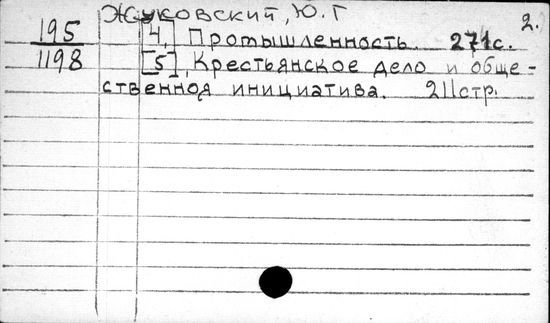 Жуковский, Ю. Г
2.
195
1198
[4] Промышленность. 271с.
[5], Крестьянское дело и обще-
ственная инициатива. 211стр.